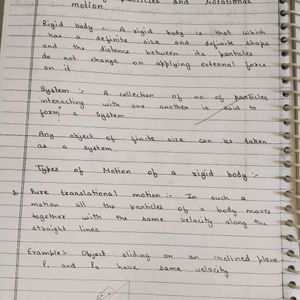 particles and Rotational
motion.
Rigid body :- A rigid body is that which
has a definite size and definite shape
and the distance between its particles
do not change on applying external force
on it.
System :- A collection of no. of particles
interacting with one another is said to
form a system.
Any object of finite size can be taken
as a system.
Types of Motion of a rigid body :-
Pure translational motion :- In such a
motion all the particles of a body moves
together with the same velocity along the
straight lines.
Example:- Object sliding on an inclined plane
P₁ and P₂ have same velocity